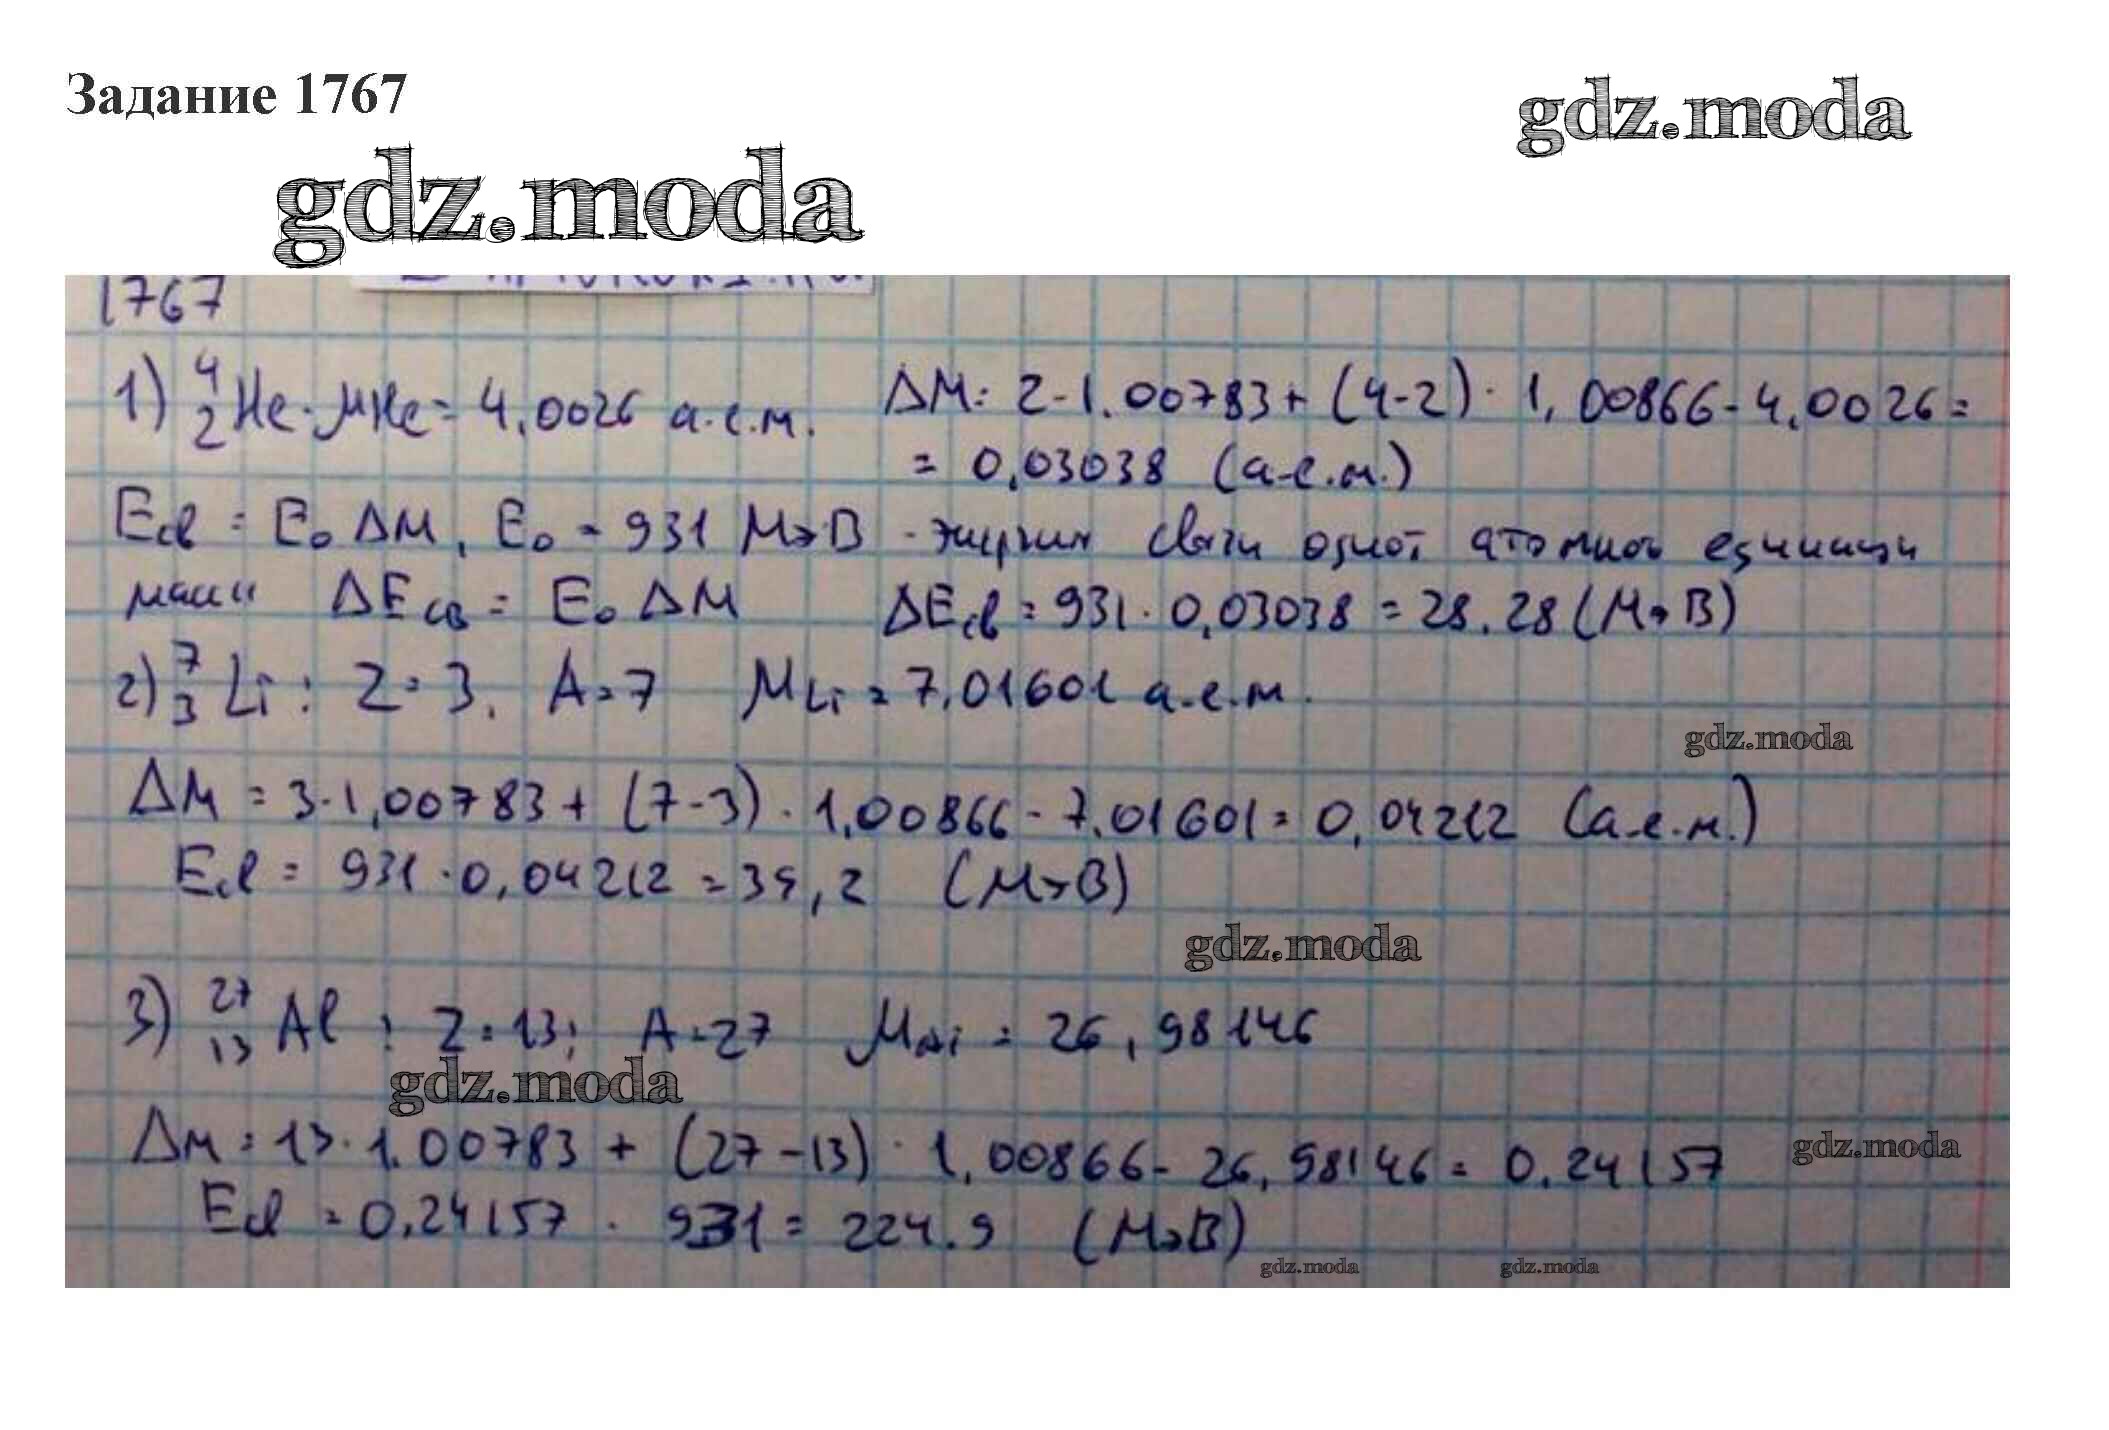 Задание 1767
gdz.moda
gdz.moda
1767
1) ⁴₂He. MHe = 4,0026 а.е.м.
ΔM = 2·1,00783 + (4-2) · 1,00866 - 4,0026 =
= 0,03038 (а.е.м.)
Eсв = E₀ ΔM, E₀ = 931 МэВ - энергия связи одной атомной единицы
массы ΔEсв = E₀ ΔM ΔEсв = 931 · 0,03038 = 28.28 (МэВ)
2) ⁷₃Li : Z = 3, A = 7 MLi = 7,01601 а.е.м.
gdz.moda
ΔM = 3·1,00783 + (7-3) · 1,00866 - 7,01601 = 0,04212 (а.е.м.)
Eсв = 931 · 0,04212 = 39,2 (МэВ)
gdz.moda
3) ²⁷₁₃Al : Z = 13; A = 27 MAl = 26,98146
gdz.moda
ΔM = 13·1,00783 + (27-13) · 1,00866 - 26,98146 = 0,24157
gdz.moda
Eсв = 0,24157 · 931 = 224.9 (МэВ)
gdz.moda gdz.moda